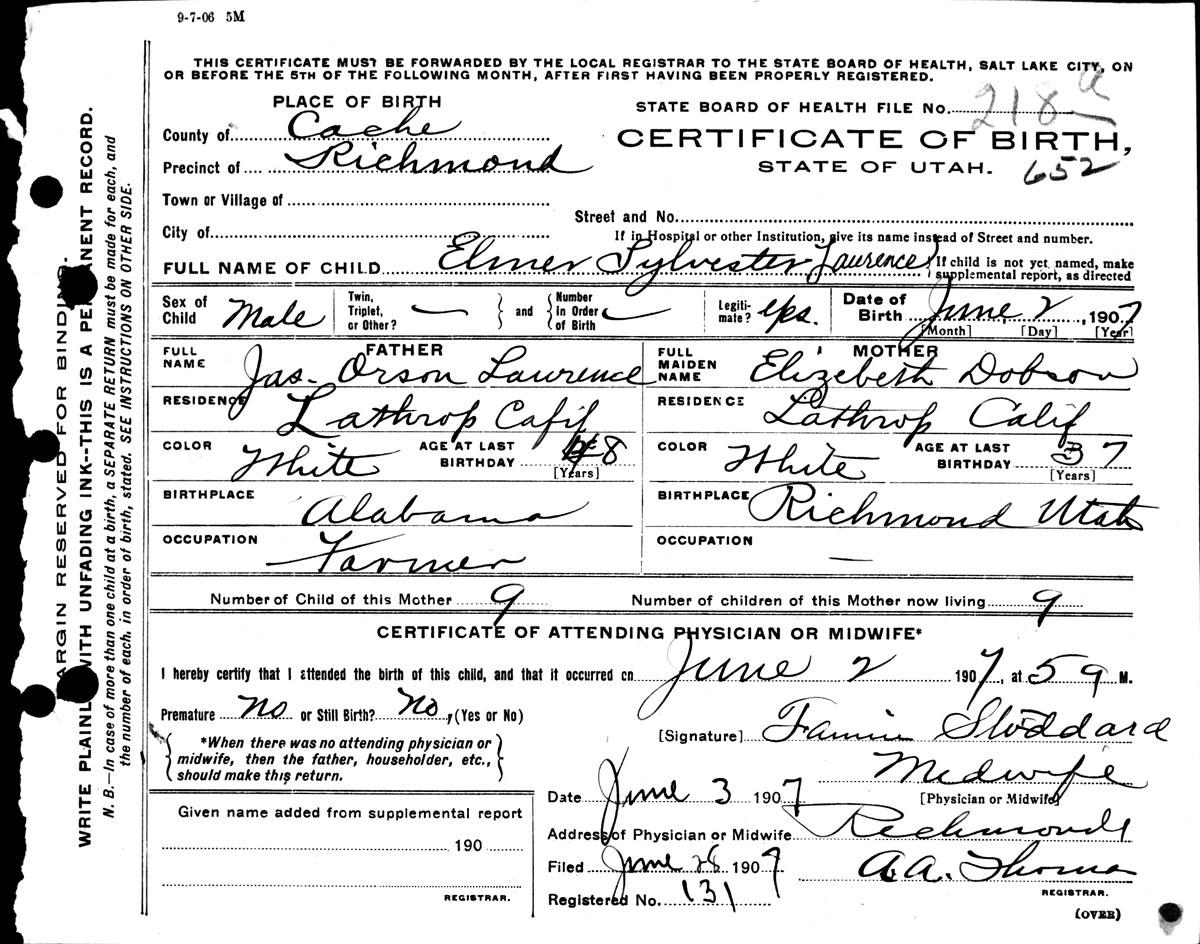 9-7-06 5M
THIS CERTIFICATE MUST BE FORWARDED BY THE LOCAL REGISTRAR TO THE STATE BOARD OF HEALTH, SALT LAKE CITY, ON
OR BEFORE THE 5TH OF THE FOLLOWING MONTH, AFTER FIRST HAVING BEEN PROPERLY REGISTERED.
PLACE OF BIRTH
County of Cache
Precinct of Richmond
Town or Village of
City of
STATE BOARD OF HEALTH FILE No. 218 a
CERTIFICATE OF BIRTH,
STATE OF UTAH. 652
Street and No.
If in Hospital or other Institution, give its name instead of Street and number.
FULL NAME OF CHILD Elmer Sylvester Laurence
If child is not yet named, make
supplemental report, as directed
Sex of Child Male
Twin, Triplet, or Other? —
and
Number In Order of Birth —
Legiti-mate? yes.
Date of Birth June 2, 1907
[Month] [Day] [Year]
FATHER
FULL NAME Jas. Orson Laurence
RESIDENCE Lathrop Calif
COLOR White
AGE AT LAST BIRTHDAY 48
[Years]
BIRTHPLACE Alabama
OCCUPATION Farmer
MOTHER
FULL MAIDEN NAME Elizebeth Dobson
RESIDENCE Lathrop Calif
COLOR White
AGE AT LAST BIRTHDAY 37
[Years]
BIRTHPLACE Richmond Utah
OCCUPATION —
Number of Child of this Mother 9
Number of children of this Mother now living 9
CERTIFICATE OF ATTENDING PHYSICIAN OR MIDWIFE*
I hereby certify that I attended the birth of this child, and that it occurred on June 2 1907, at 5 9 M.
Premature No or Still Birth? No, (Yes or No)
*When there was no attending physician or
midwife, then the father, householder, etc.,
should make this return.
[Signature] Stoddard
Midwife
[Physician or Midwife]
Date June 3 1907
Address of Physician or Midwife Richmond
Filed June 28 1907
A. A. Thomas
REGISTRAR.
Registered No. 131
(OVER)
Given name added from supplemental report
190
REGISTRAR.
MARGIN RESERVED FOR BINDING.
WRITE PLAINLY WITH UNFADING INK--THIS IS A PERMANENT RECORD.
N. B.—In case of more than one child at a birth, a SEPARATE RETURN must be made for each, and
the number of each, in order of birth, stated. SEE INSTRUCTIONS ON OTHER SIDE.